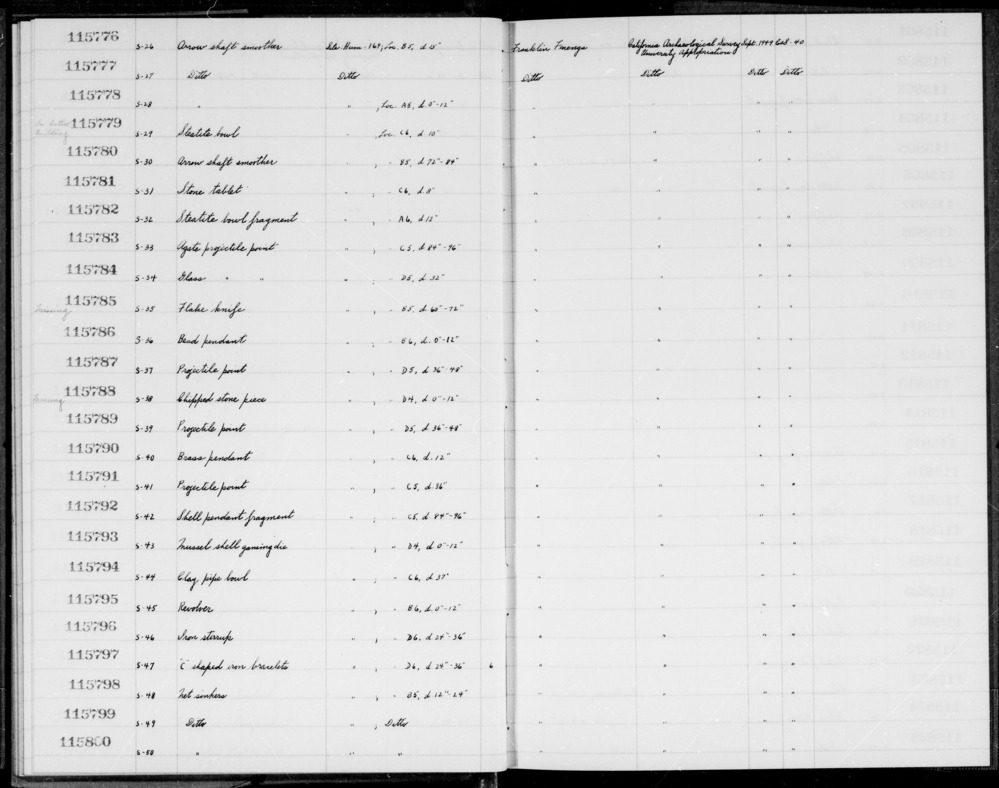 115776 S-26 Arrow shaft smoother Site Hum-169; Loc. B5, d. 15" Franklin Fenenga California Archaeological Survey Sept. 1949
University Appropriation
115777 S-27 Ditto Ditto Ditto Ditto Ditto Ditto
115778 S-28 " " , Loc. A5, d. 0"-12" " " " "
115779 S-29 Steatite bowl " , Loc. C6, d. 10" " " " "
building
115780 S-30 Arrow shaft smoother " , " B5, d. 72"-84" " " " "
115781 S-31 Stone tablet " , " C6, d. 8" " " " "
115782 S-32 Steatite bowl fragment " , " A6, d. 12" " " " "
115783 S-33 Agate projectile point " , " C5, d. 84"-96" " " " "
115784 S-34 Glass " " " , " D5, d. 32" " " " "
115785 S-35 Flake knife " , " B5, d. 60"-72" " " " "
Missing
115786 S-36 Bead pendant " , " B6, d. 0"-12" " " " "
115787 S-37 Projectile point " , " D5, d. 36"-48" " " " "
115788 S-38 Chipped stone piece " , " D4, d. 0"-12" " " " "
Missing
115789 S-39 Projectile point " , " D5, d. 36"-48" " " " "
115790 S-40 Brass pendant " , " C6, d. 12" " " " "
115791 S-41 Projectile point " , " C5, d. 36" " " " "
115792 S-42 Shell pendant fragment " , " C5, d. 84"-96" " " " "
115793 S-43 Mussel shell gaming die " , " D4, d. 0"-12" " " " "
115794 S-44 Clay pipe bowl " , " C6, d. 37" " " " "
115795 S-45 Revolver " , " B6, d. 0"-12" " " " "
115796 S-46 Iron stirrup " , " D6, d. 24"-36" " " " "
115797 S-47 "C" shaped iron bracelets " , " D6, d. 24"-36" 6 " " " "
115798 S-48 Net sinkers " , " B5, d. 12"-24" " " " "
115799 S-49 Ditto " , Ditto " " " "
115800 S-50 " " " " " " "